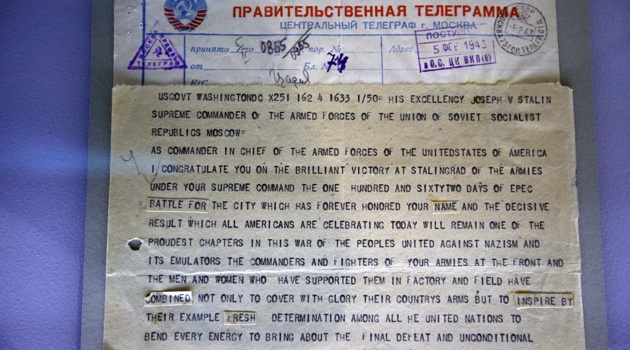 ПРАВИТЕЛЬСТВЕННАЯ ТЕЛЕГРАММА
ЦЕНТРАЛЬНЫЙ ТЕЛЕГРАФ г. МОСКВА
принято 0855 пор. № Адрес
от Бл. №
5 ФЕВ 1943
в О.С. ЦК ВКП(б)
USGOVT WASHINGTONDC X251 162 4 1633 1/50= HIS EXCELLENCY JOSEPH V STALIN
SUPREME COMMANDER OF THE ARMED FORCES OF THE UNION OF SOVIET SOCIALIST
REPUBLICS MOSCOW=
AS COMMANDER IN CHIEF OF THE ARMED FORCES OF THE UNITEDSTATES OF AMERICA
I CONGRATULATE YOU ON THE BRILLIANT VICTORY AT STALINGRAD OF THE ARMIES
UNDER YOUR SUPREME COMMAND THE ONE HUNDRED AND SIXTYTWO DAYS OF EPEC
BATTLE FOR THE CITY WHICH HAS FOREVER HONORED YOUR NAME AND THE DECISIVE
RESULT WHICH ALL AMERICANS ARE CELEBRATING TODAY WILL REMAIN ONE OF THE
PROUDEST CHAPTERS IN THIS WAR OF THE PEOPLES UNITED AGAINST NAZISM AND
ITS EMULATORS THE COMMANDERS AND FIGHTERS OF YOUR ARMIES AT THE FRONT AND
THE MEN AND WOMEN WHO HAVE SUPPORTED THEM IN FACTORY AND FIELD HAVE
COMBINED NOT ONLY TO COVER WITH GLORY THEIR COUNTRYS ARMS BUT TO INSPIRE BY
THEIR EXAMPLE FRESH DETERMINATION AMONG ALL HE UNITED NATIONS TO
BEND EVERY ENERGY TO BRING ABOUT THE FINAL DEFEAT AND UNCONDITIONAL